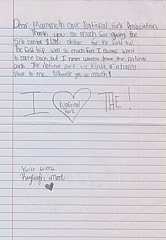 Dear Mammoth Cave National Park Association,
Thank you so much for giving the
5th graders $1,000 dollars for the field trip.
The field trip was so much fun I always want
to come back, but I never wanna leave the national
park. The national park is kinda of a lovely
place to me. Thank you so much!
I National Park THE!
Your friend